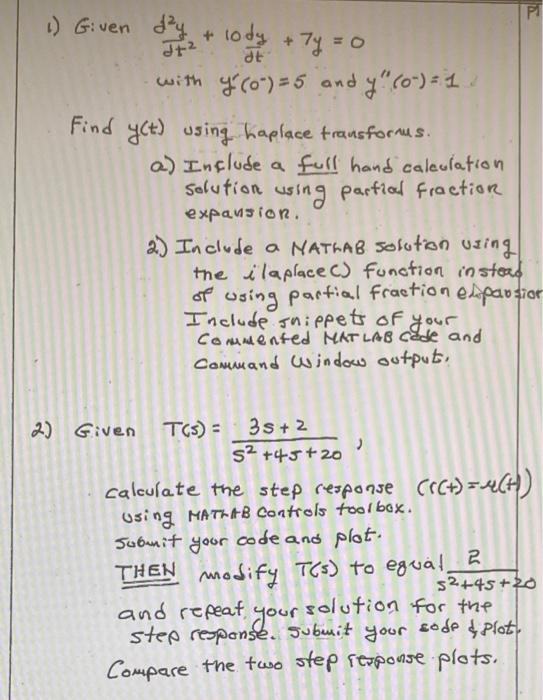 P1
1) Given d²y/dt² + 10dy/dt + 7y = 0
with y'(0⁻)=5 and y''(0⁻)=1
Find y(t) using Laplace transforms.
a) Include a full hand calculation
solution using partial fraction
expansion.
2) Include a MATLAB solution using
the ilaplace() function instead
of using partial fraction expansion
Include snippets of your
commented MATLAB code and
Command Window output.
2) Given T(s) = 3s+2 / s²+4s+20 ,
calculate the step response (r(t)=u(t))
using MATLAB Controls toolbox.
Submit your code and plot.
THEN modify T(s) to equal 2 / s²+4s+20
and repeat your solution for the
step response. Submit your code & plot.
Compare the two step response plots.